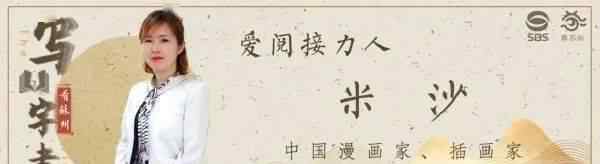 爱阅接力人
米沙
中国漫画家、插画家
写
字
看苏州
SBS
看苏州